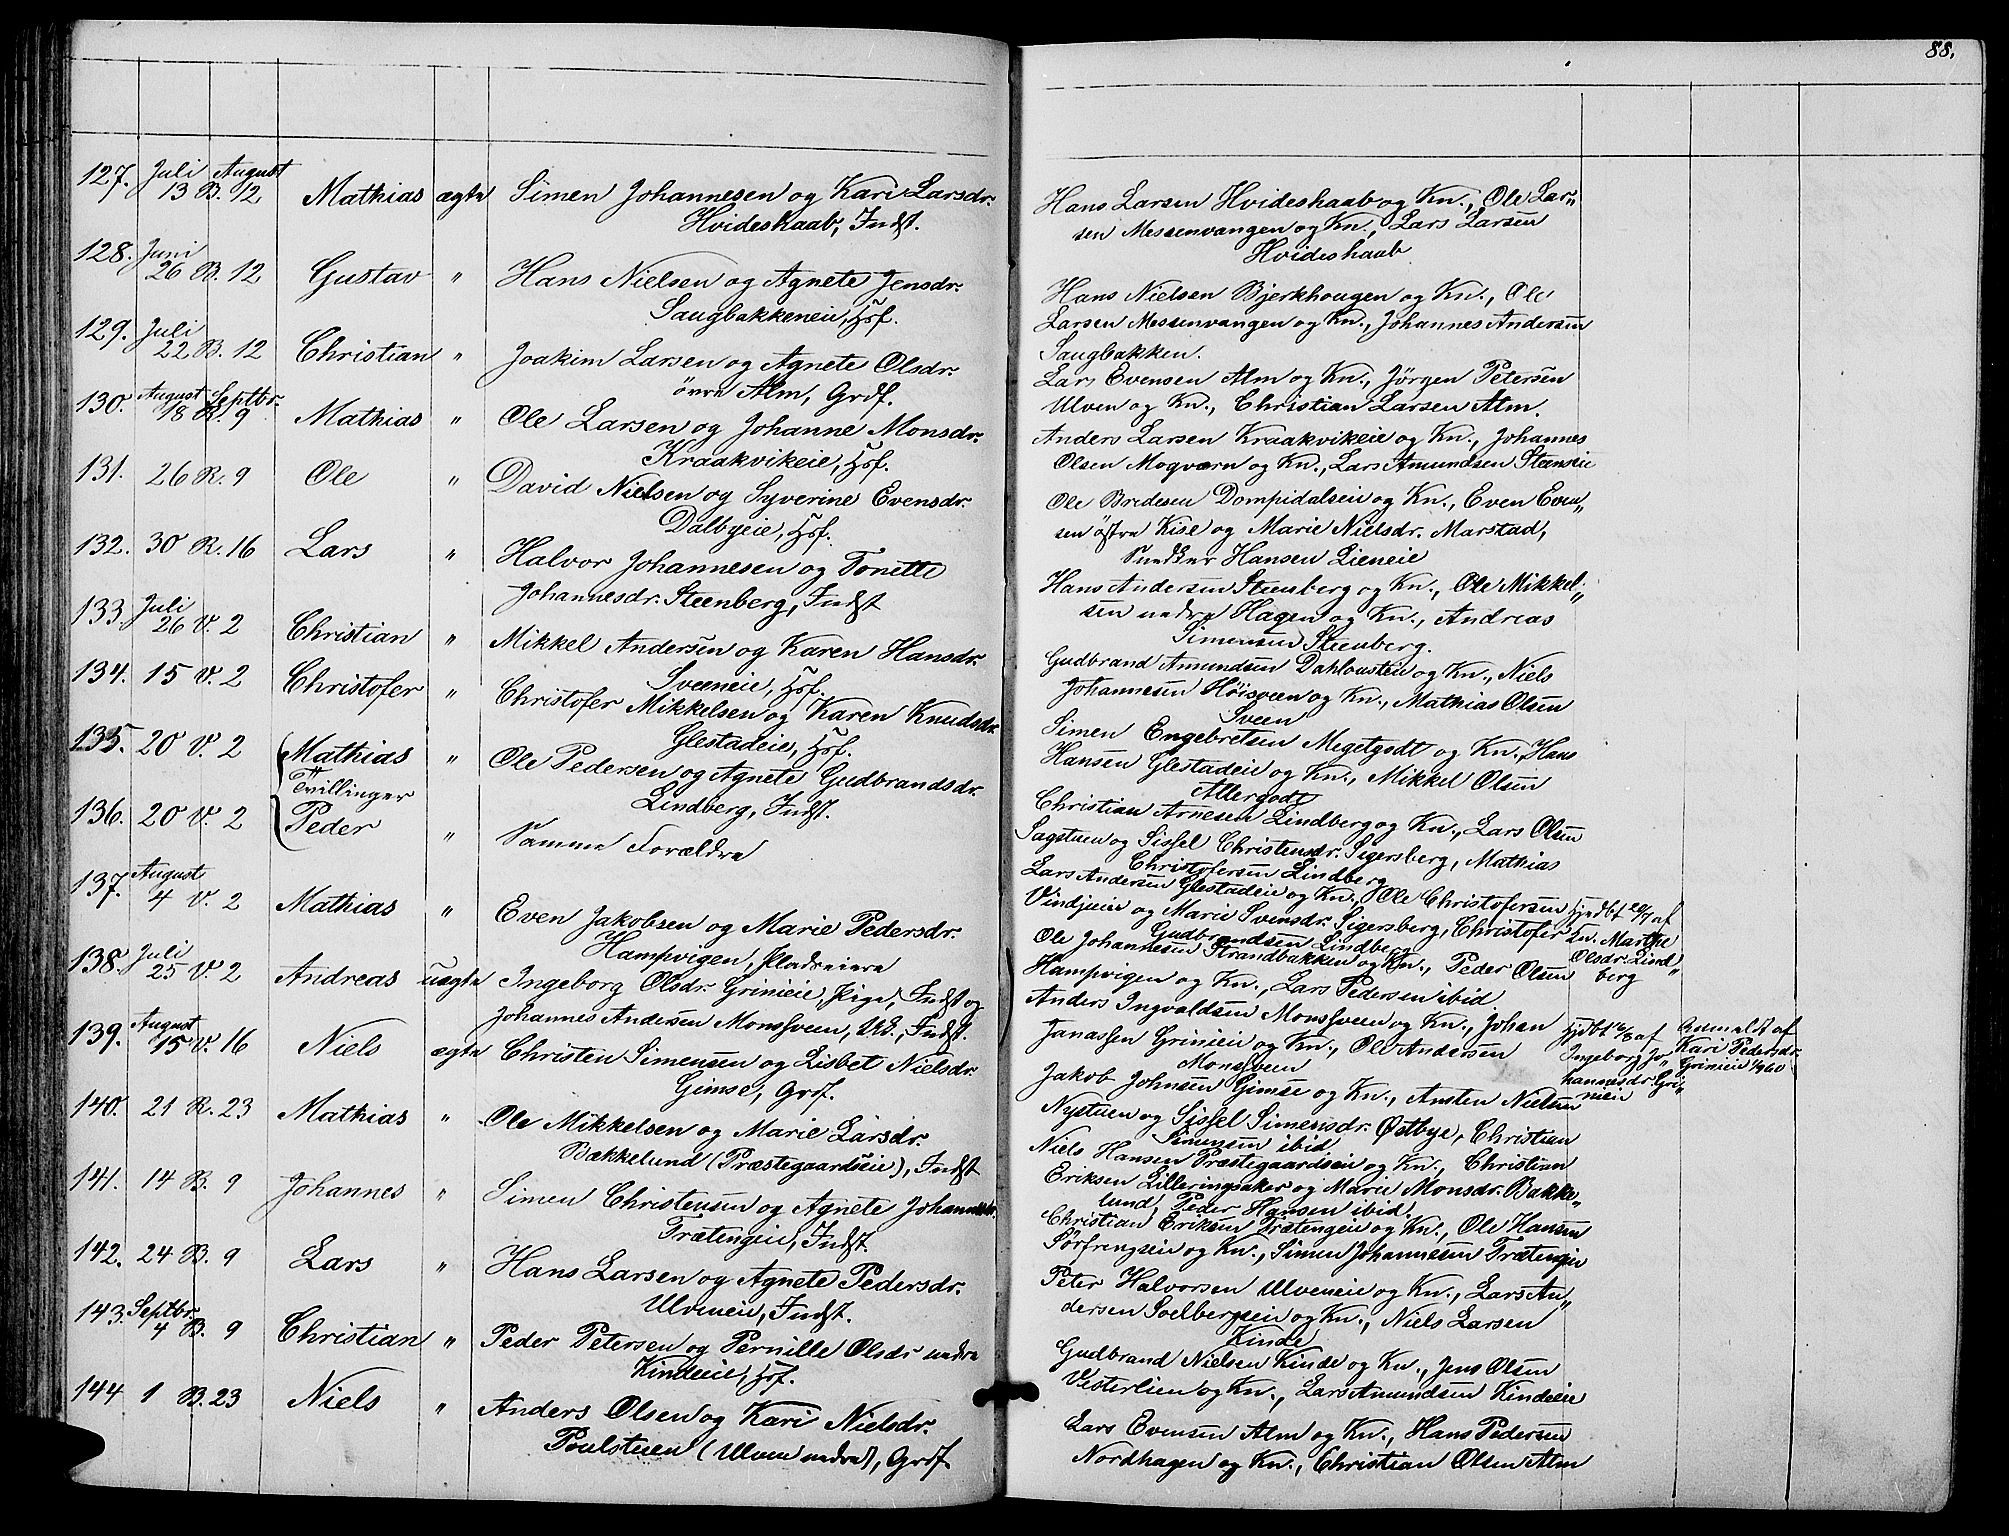 88.
127. Juli 13 B. August 12 Mathias ægte Simen Johannesen og Kari Larsdr.
Hvideskaab, Indst.
128. Juni 26 B. 12 Gustav " Hans Nielsen og Agnete Jensdr.
Saugbakkeneie, Hsf.
129. Juli 22 B. 12 Christian " Joakim Larsen og Agnete Olsdr.
övre Alm, Grdf.
130. August 18 R. Septbr. 9 Mathias " Ole Larsen og Johanne Monsdr.
Kraakvikeie, Hsf.
131. 26 R. 9 Ole " David Nielsen og Syverine Evensdr.
Dalbyeie, Hsf.
132. 30 R. 16 Lars " Halvor Johannesen og Tonette
Johannesdr. Steenberg, Indst
133. Juli 26 V. 2 Christian " Mikkel Andersen og Karen Hansdr.
Sveeneie, Hsf.
134. 15 V. 2 Christofer " Christofer Mikkelsen og Karen Knudsdr.
Glestadeie, Hsf.
135. 20 V. 2 Mathias " Ole Pedersen og Agnete Gudbrandsdr.
Tvillinger
Lindberg, Indst.
136. 20 V. 2 Peder " Samme Forældre
137. August 4 V. 2 Mathias " Even Jakobsen og Marie Pedersdr.
Hampvigen, Pladseiere
138. Juli 25 V. 2 Andreas uægte Ingeborg Olsdr. Grinieie, Pige, Indst og
Johannes Andersen Monssveen, Indst.
139. August 15 V. 16 Niels ægte Christen Simensen og Lisbet Nielsdr.
Gimse, Grdf.
140. 21 R. 23 Mathias " Ole Mikkelsen og Marie Larsdr.
Bækkelund (Præstegaardseie), Indst
141. 14 B. 9 Johannes " Simen Christensen og Agnete Johannesdr.
Trætengeie, Indst.
142. 24 B. 9 Lars " Hans Larsen og Agnete Pedersdr.
Ulveneie, Indst.
143. Septbr. 4 B. 9 Christian " Peder Petersen og Pernille Olsdr nedre
Kindeeie, Hsf.
144 1 B. 23 Niels " Anders Olsen og Kari Nielsdr.
Poulstuen (Ulven nedre), Grdf.
Hans Larsen Hvideskaab og Kn., Ole Lar„
sen Messenvangen og Kn., Lars Larsen
Hvideskaab
Hans Nielsen Bjerkhougen og Kn., Ole
Larsen Messenvangen og Kn., Johannes Andersen
Saugbakken.
Lars Evensen Alm og Kn., Jörgen Petersen
Ulven og Kn., Christian Larsen Alm.
Anders Larsen Kraakvikeie og Kn., Johannes
Olsen Mogværn og Kn., Lars Amundsen Steenseie
Ole Bredesen Dompidalseie og Kn., Even Even„
sen östre Kise og Marie Nielsdr. Marstad,
Hansen Lieneie
Hans Andersen Steenberg og Kn., Ole Mikkel„
sen nedre Hagen og Kn., Andreas
Simensen Steenberg.
Gudbrand Amundsen og Kn., Niels
Johannesen Höisveen og Kn., Mathias Olsen
Sveen
Simen Engebretsen Megetgodt og Kn., Hans
Hansen Glestadeie og Kn., Mikkel Olsen
Allergodt
Christian Arnesen Lindberg og Kn., Lars Olsen
Sagstuen og Sissel Christensdr. Sigersberg, Mathias
Christofersen Lindberg
Lars Andersen Glestadeie og Kn., Ole Christofersen
Vindjueie og Marie Svensdr. Sigersberg, Christofer
Gudbrandsen Lindberg
Hjdbt 20/7 af
Kn. Marthe
Olsdr. Lind„
berg
Ole Johannesen Strandbakken og Kn., Peder Olsen
Hampvigen og Kn., Lars Pedersen ibid
Anders Ingvaldsen Monssveen og Kn., Johan
Janassen Grinieie og Kn., Ole Andersen
Monssveen
Hjdbt 16/8 af
Ingeborg Jo„
hannesdr. Gri„
nieie
Anmeldt af
Kari Pedersdr.
Grinieie
Jakob Johnsen Gimse og Kn., Amsten Nielsen
Nystuen og Sissel Simensdr. Østbye, Christian
Simensen ibid
Niels Hansen Præstegaardseie og Kn., Christian
Eriksen Lilleringsaker og Marie Monsdr. Bække„
lund, Peder Hansen ibid.
Christian Eriksen Trætengeie og Kn., Ole Hansen
Sörfrengseie og Kn., Simen Johannesen Trætengeie
Peter Halvorsen Ulveneie og Kn., Lars An„
dersen Soelbergseie og Kn., Niels Larsen
Kinde
Gudbrand Nielsen Kinde og Kn., Jens Olsen
Vesterlien og Kn., Lars Amundsen Kindeeie
Lars Evensen Alm og Kn., Hans Pedersen
Nordhagen og Kn., Christian Olsen Alm